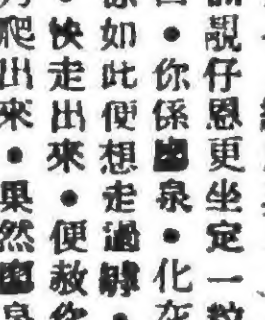 靚仔恩更坐定一
●你係幽泉●化灰
如此便想走過●
快走出來●便救你
爬出來●果然幽泉